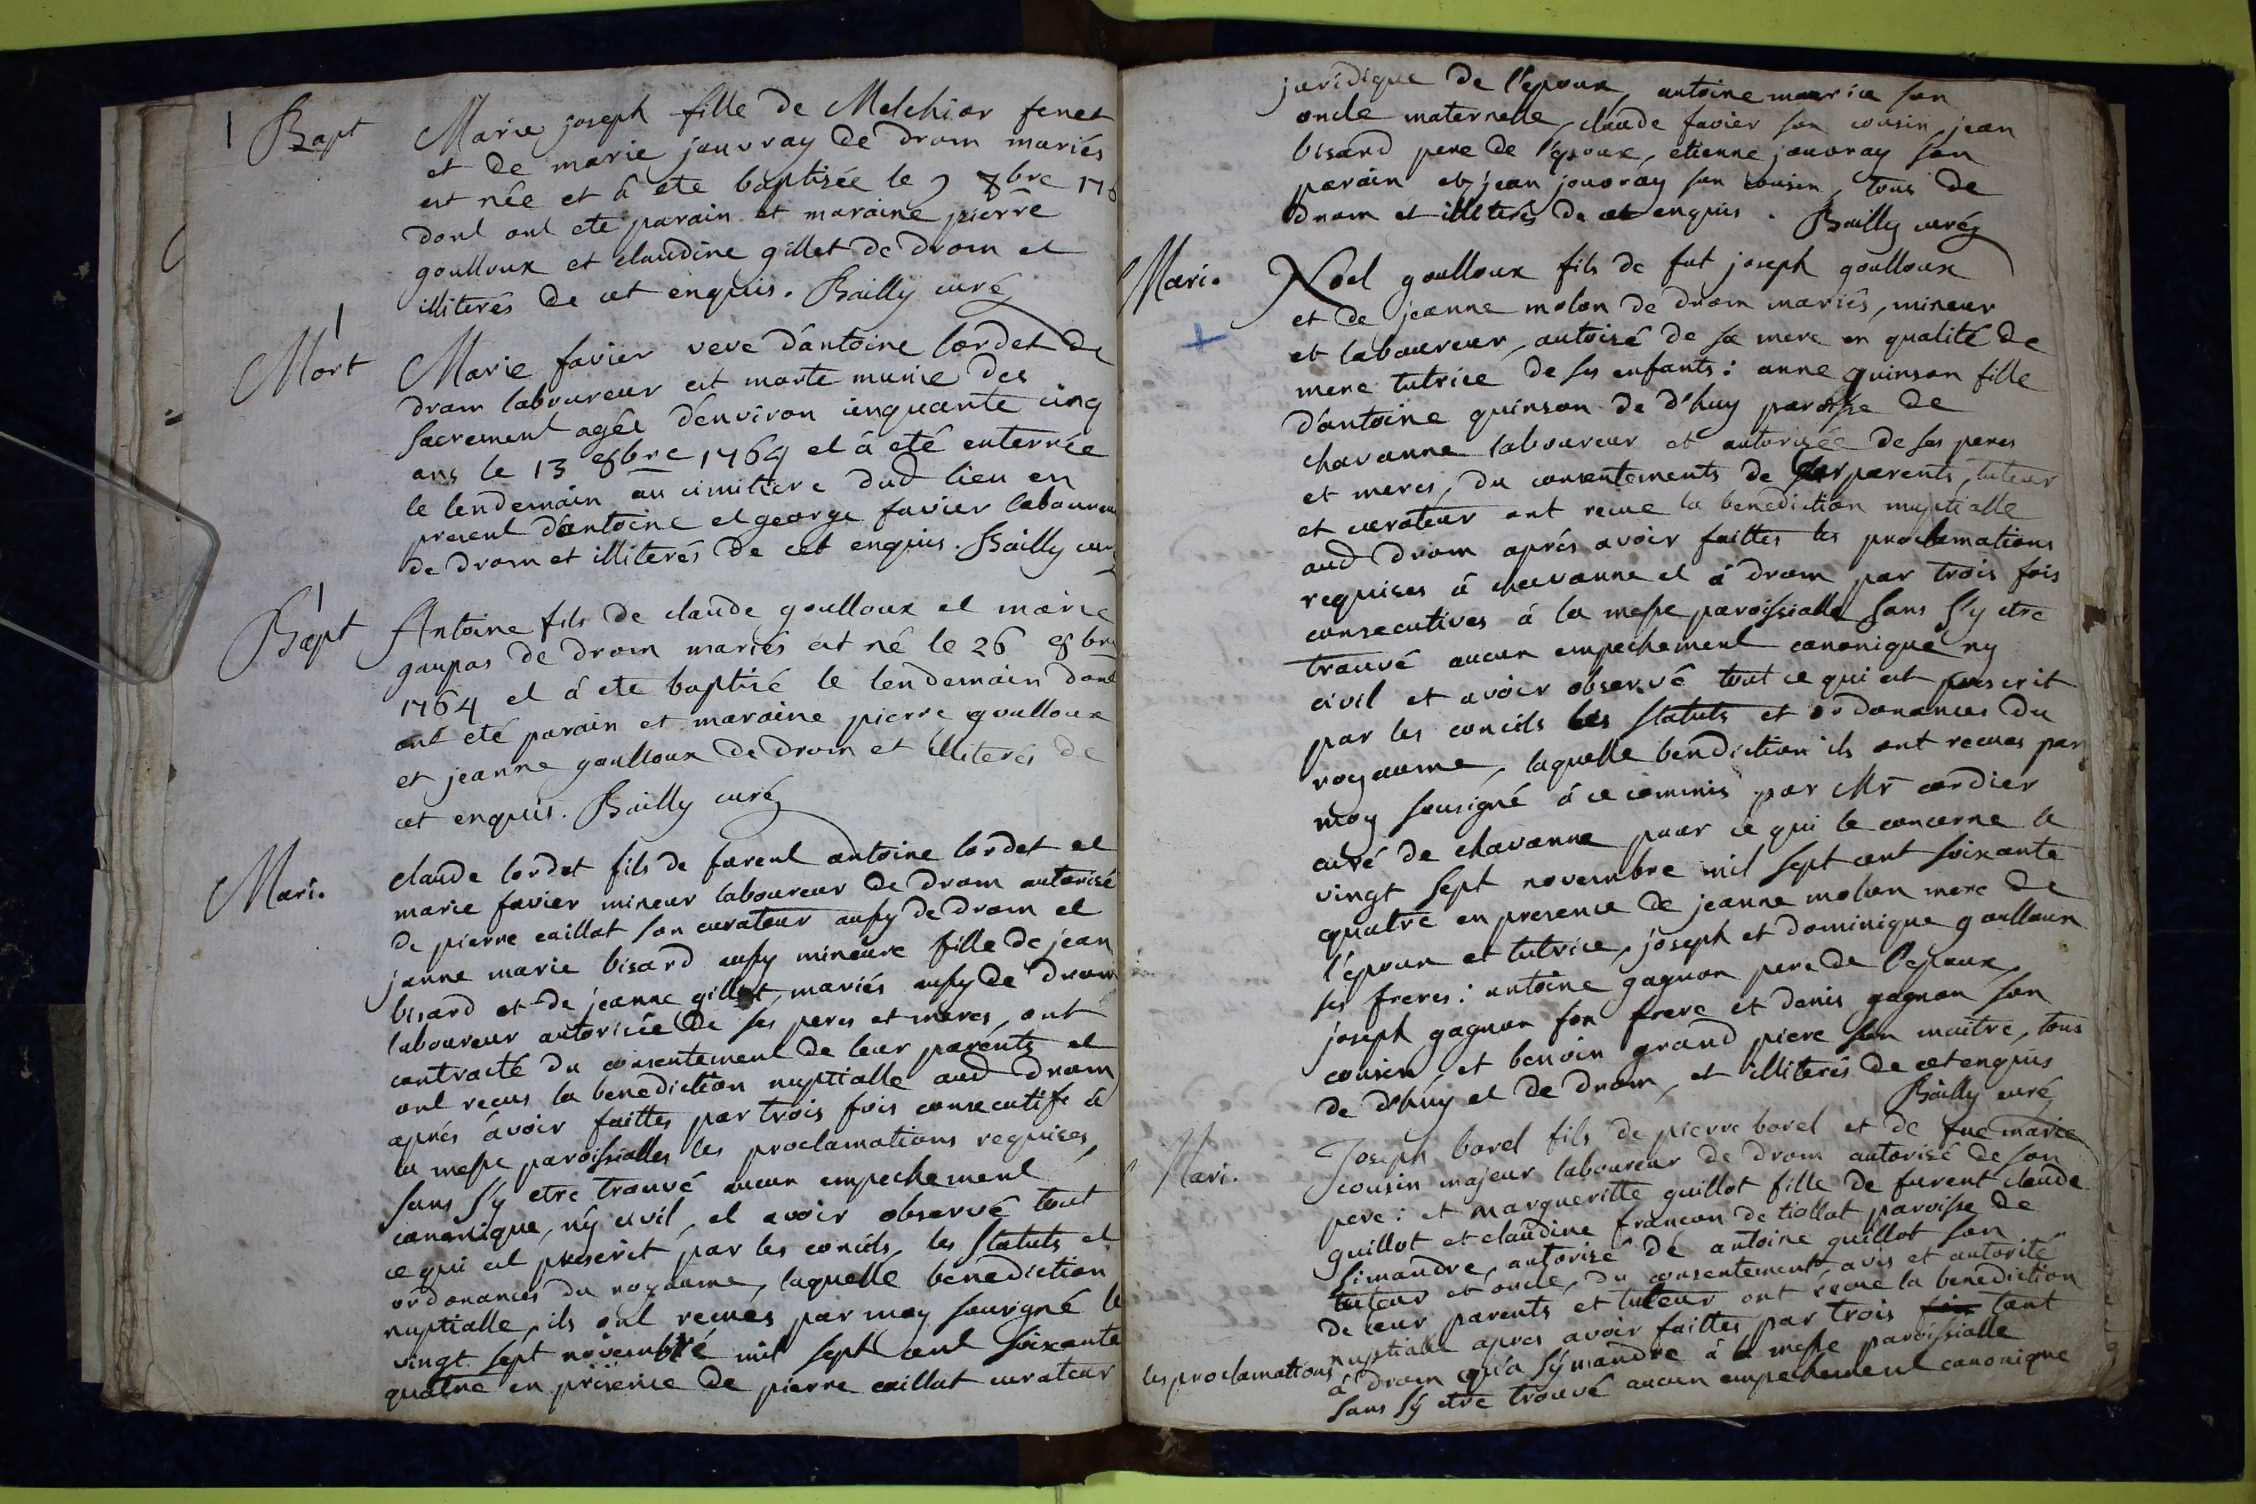 Bapt
Marie joseph fille de Melchior fenet
et de marie jouvray de drom mariés
est née et á ete baptisée le 9 8bre 176
dont ont ete parain et maraine pierre
goulloux et claudine gillet de drom et
illiterés de cet enquis. Bailly curé
Mort
Marie favier veve d'antoine lordet de
drom laboureur est morte munie des
sacrement agée d'environ cinquante cinq
ans le 13 8bre 1764 et á eté enterrée
le lendemain au cimitiere dud lieu en
present d'antoine et george favier laboureur
de drom et illiterés de cet enquis. Bailly curé
Bapt
Antoine fils de claude goulloux et marie
gaupas de drom mariés est né le 26 8bre
1764 et á ete baptisé le lendemain dont
ont eté parain et maraine pierre goulloux
et jeanne goulloux de drom et illiterés de
cet enquis. Bailly curé
Mari.
claude lordet fils de furent antoine lordet et
marie favier mineur laboureur de drom autorisé
de pierre caillat son curateur aussy de drom et
janne marie bisard aussy mineure fille de jean
bisard et de jeanne gillet, mariés aussy de drom
laboureur autorisée de ses peres et meres, ont
contracté du consentement de leur parents et
ont recus la benediction nuptialle aud drom
aprés ávoir faittes par trois fois consecutifs á
la messe paroissialles les proclamations requises,
sans s'y etre trouvé aucun empechement
canonique, ny civil, et avoir observé tout
ce qui est prescrit par les concils, les statuts et
ordonances du royaume, laquelle benediction
nuptialle, ils ont recues par moy sousigné le
vingt sept novembre mil sept cent soixante
quatre en présence de pierre caillat curateur
juridique de l'epoux, antoine maurice son
oncle maternelle, claude favier son cousin, jean
bisard pere de l'epouse, etienne jouvray son
parain et jean jouvray son cousin, tous de
drom et illiterés de cet enquis. Bailly curé
Mari.
Noel goulloux fils de fut joseph goulloux
et de jeanne molon de drom mariés, mineur
et laboureur, autoisé de sa mere en qualité de
mere tutrice de ses enfants: anne quinson fille
d'antoine quinson de d'huy paroisse de
chavanne laboureur et autorisée de ses peres
et meres, du consentements de leur parents, tuteur
et curateur ont recue la benediction nuptialle
aud drom aprés avoir faittes les proclamations
requises á chavanne et á drom par trois fois
consecutives á la messe paroissialle sans s'y etre
trouvé aucun empechement canonique ny
civil et avoir observé tout ce qui est prescrit
par les concils les statuts et ordonances du
royaume, laquelle bendiction ils ont recues par
moy sousigné á ce commis par Mr cordier
curé de chavanne pour ce qui le concerne le
vingt sept novembre mil sept cent soixante
quatre en presence de jeanne molon mere de
l'époux et tutrice, joseph et dominique goulloux
ses freres: antoine gagnon pere de l'epoux,
joseph gagnon son frere et denis gagnon son
cousin, et benoin grand piere son maitre, tous
de d'huy et de drom, et illiterés de cet enquis
Bailly curé
Mari.
Joseph borel fils de pierre borel et de fue marie
cousin majeur laboureur de drom autorisé de son
pere: et margueritte guillot fille de furent claude
guillot et claudine francon de tiollat paroisse de
simandre, autorisé de antoine guillot son
tuteur et oncle, du consentement avis et autorité
de leur parents et tuteur ont recue la benediction
nuptiale apres avoir faittes par trois fois tant
les proclamations
á drom qu'a symandre á la messe paroissialle
sans s'y etre trouvé aucun empechement canonique